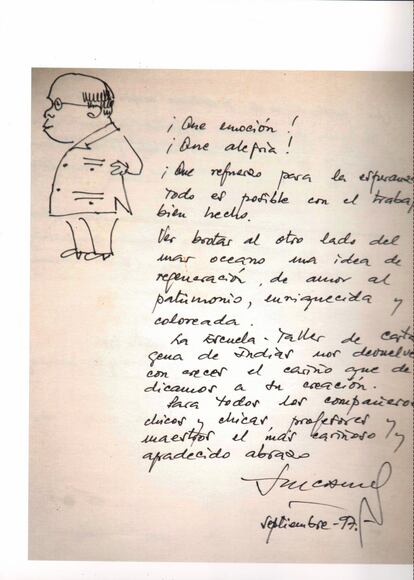 ¡Que emoción!
¡Que alegria!
¡Que refuerzo para la esperan
Todo es posible con el trabaj
bien hecho.
Ver brotar al otro lado del
mar oceano una idea de
regeneración, de amor al
patrimonio, enriquecida y
coloreada.
La Escuela-Taller de Carta
gena de Indias nos devuelve
con creces el cariño que de
dicamos a su creación.
Para todos los compañeros
chicos y chicas, profesores y
maestros el más cariñoso y
agradecido abrazo
septiembre-97.